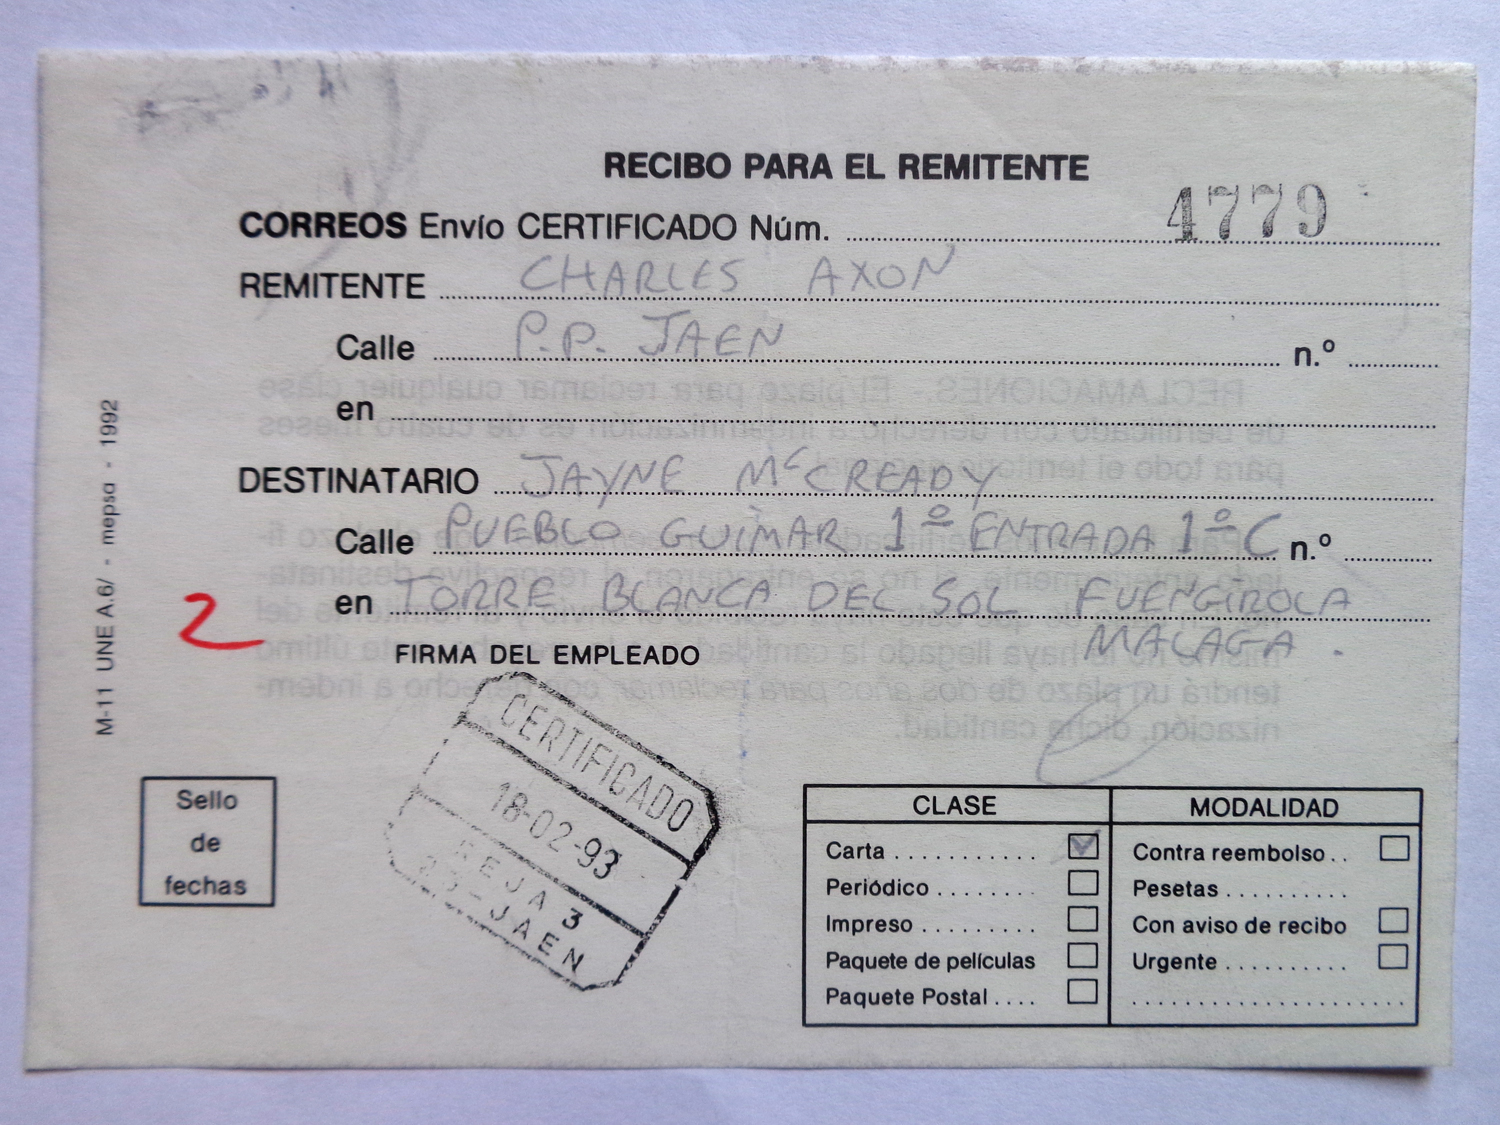 RECIBO PARA EL REMITENTE
CORREOS Envío CERTIFICADO Núm. 4779
REMITENTE CHARLES AXON
Calle P.P. JAEN n.º
en
DESTINATARIO JAYNE McCREADY
Calle PUEBLO GUIMAR 1º ENTRADA 1º C n.º
en TORRE BLANCA DEL SOL FUENGIROLA
MALAGA.
2
FIRMA DEL EMPLEADO
M-11 UNE A.6/ - mepsa - 1992
CERTIFICADO
18-02-93
REJA 3
23-JAEN
Sello
de
fechas
CLASE MODALIDAD
Carta . . . . . . . . . . . Contra reembolso . .
Periódico . . . . . . . . Pesetas . . . . . . . . . .
Impreso . . . . . . . . . Con aviso de recibo
Paquete de películas Urgente . . . . . . . . . .
Paquete Postal . . . .